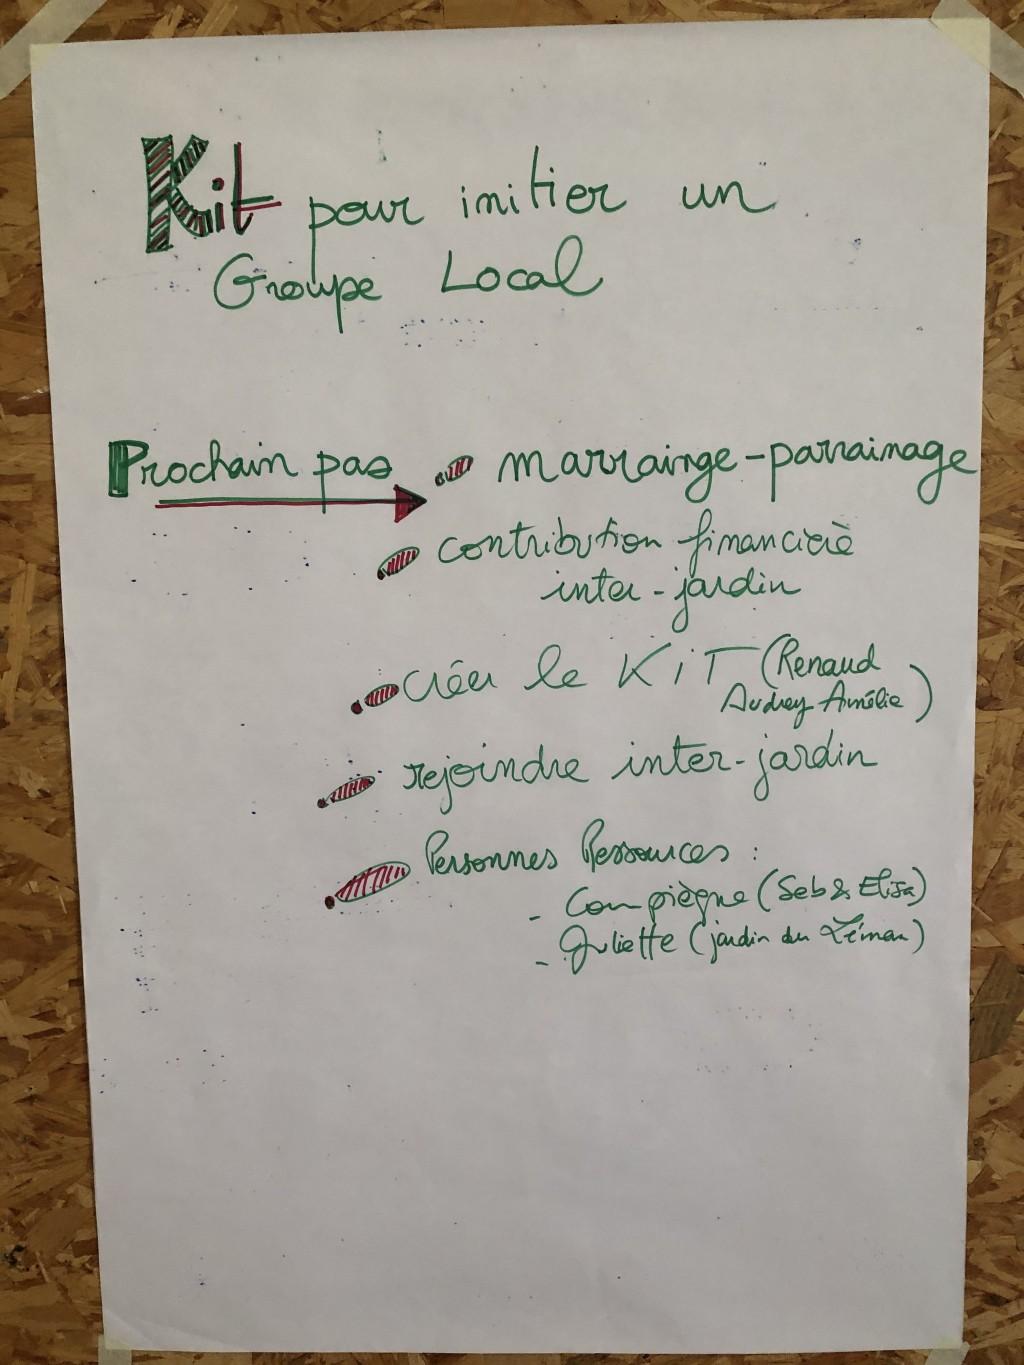 Kit pour initier un
Groupe Local
Prochain pas marrainge-parrainage
contribution financière
inter-jardin
créer le KiT (Renaud
Audrey Amélie)
rejoindre inter-jardin
Personnes Ressources :
- Compiègne (Seb & Elisa)
- Juliette (jardin du Léman)